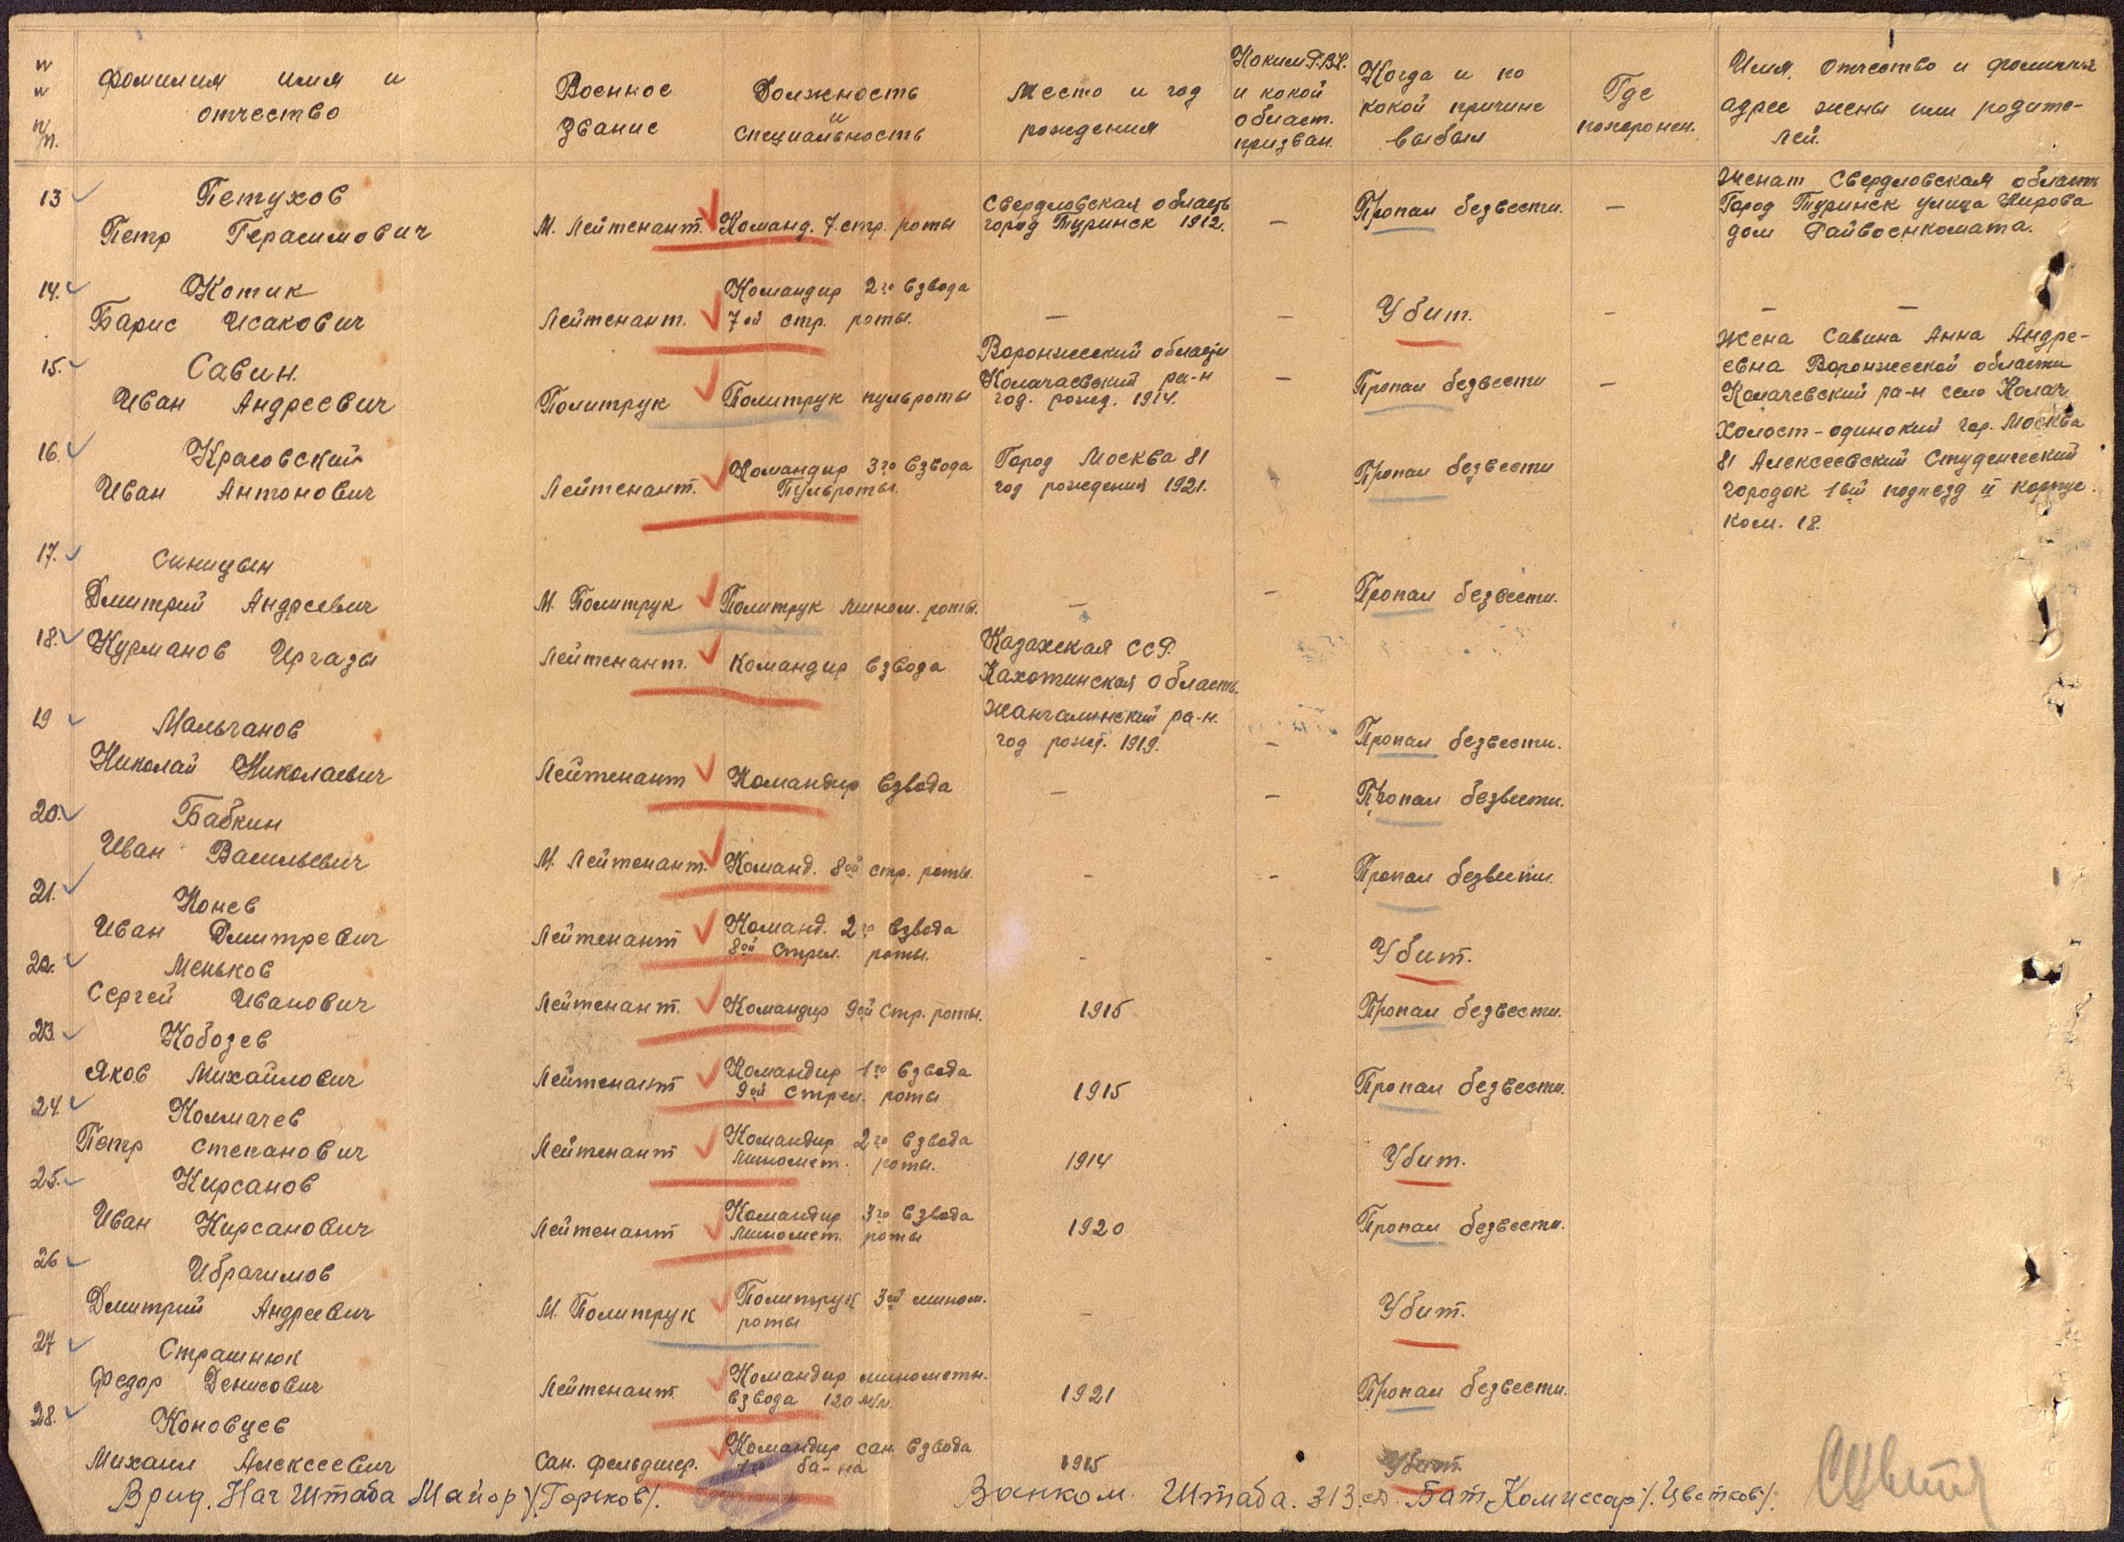 №№ п/п. Фамилия имя и отчество Военное звание Должность и специальность Место и год рождения Каким Р.В.К. и какой област. призван. Когда и по какой причине выбыл Где похоронен. Имя, отчество и фамилия адрес жены или родителей.
13 Петухов
Петр Герасимович
М. Лейтенант. Команд. 7 стр. роты
Свердловская область
город Туринск 1912.
— Пропал безвести. —
Женат Свердловская область
Город Туринск улица Кирова
дом Райвоенкомата.
14. Котик
Барис Исакович
Лейтенант.
Командир 2го взвода
7ой стр. роты.
— — Убит. — — —
15. Савин.
Иван Андреевич
Политрук Политрук пульроты
Воронжеский области
Колачаевский ра-н
год. рожд. 1914.
— Пропал безвести —
Жена Савина Анна Андре-
евна Воронжеской области
Калачевский ра-н село Калач
16. Красовский
Иван Антонович
Лейтенант.
Командир 3го взвода
Пульроты.
Город Москва 81
год рождения 1921.
Пропал безвести
Холост-одинокий гор. Москва
81 Алексеевский Студенческий
городок 1ый подъезд II корпус.
ком. 18.
17. Синицын
Дмитрий Андреевич
М. Политрук Политрук мином. роты.
— — Пропал безвести.
18. Курманов Иргазы
Лейтенант. Командир взвода
Казахская ССР.
Кахотинская область.
Жангалинский ра-н.
год рожд. 1919.
— Пропал безвести.
19 Мальчанов
Николай Николаевич
Лейтенант Командир взвода
— — Пропал безвести.
20. Бабкин
Иван Васильевич
М. Лейтенант. Команд. 8ой стр. роты.
- - Пропал безвести.
21. Конев
Иван Дмитревич
Лейтенант
Команд. 2го взвода
8ой стрел. роты.
- - Убит.
22. Меньков
Сергей Иванович
Лейтенант. Командир 9ой стр. роты.
1915 Пропал безвести.
23. Кобозев
Яков Михайлович
Лейтенант
Командир 1го взвода
9ой стрел. роты
1915 Пропал безвести.
24. Колмачев
Петр Степанович
Лейтенант
Командир 2го взвода
миномет. роты.
1914 Убит.
25. Кирсанов
Иван Кирсанович
Лейтенант
Командир 3го взвода
миномет. роты
1920 Пропал безвести.
26 Ибрагимов
Дмитрий Андреевич
М. Политрук
Политрук 3ей мином.
роты
- Убит.
27 Страшнюк
Федор Денисович
Лейтенант.
Командир минометн.
взвода 120 м/м.
1921 Пропал безвести.
28. Коновцев
Михаил Алексеевич
Сан. фельдшер.
Командир сан. взвода
ба-на
1915 Убит.
Врид. Нач Штаба Майор /Горьков/.
Воиком. Штаба. 313.сд. Бат. Комиссар /Цветков/.